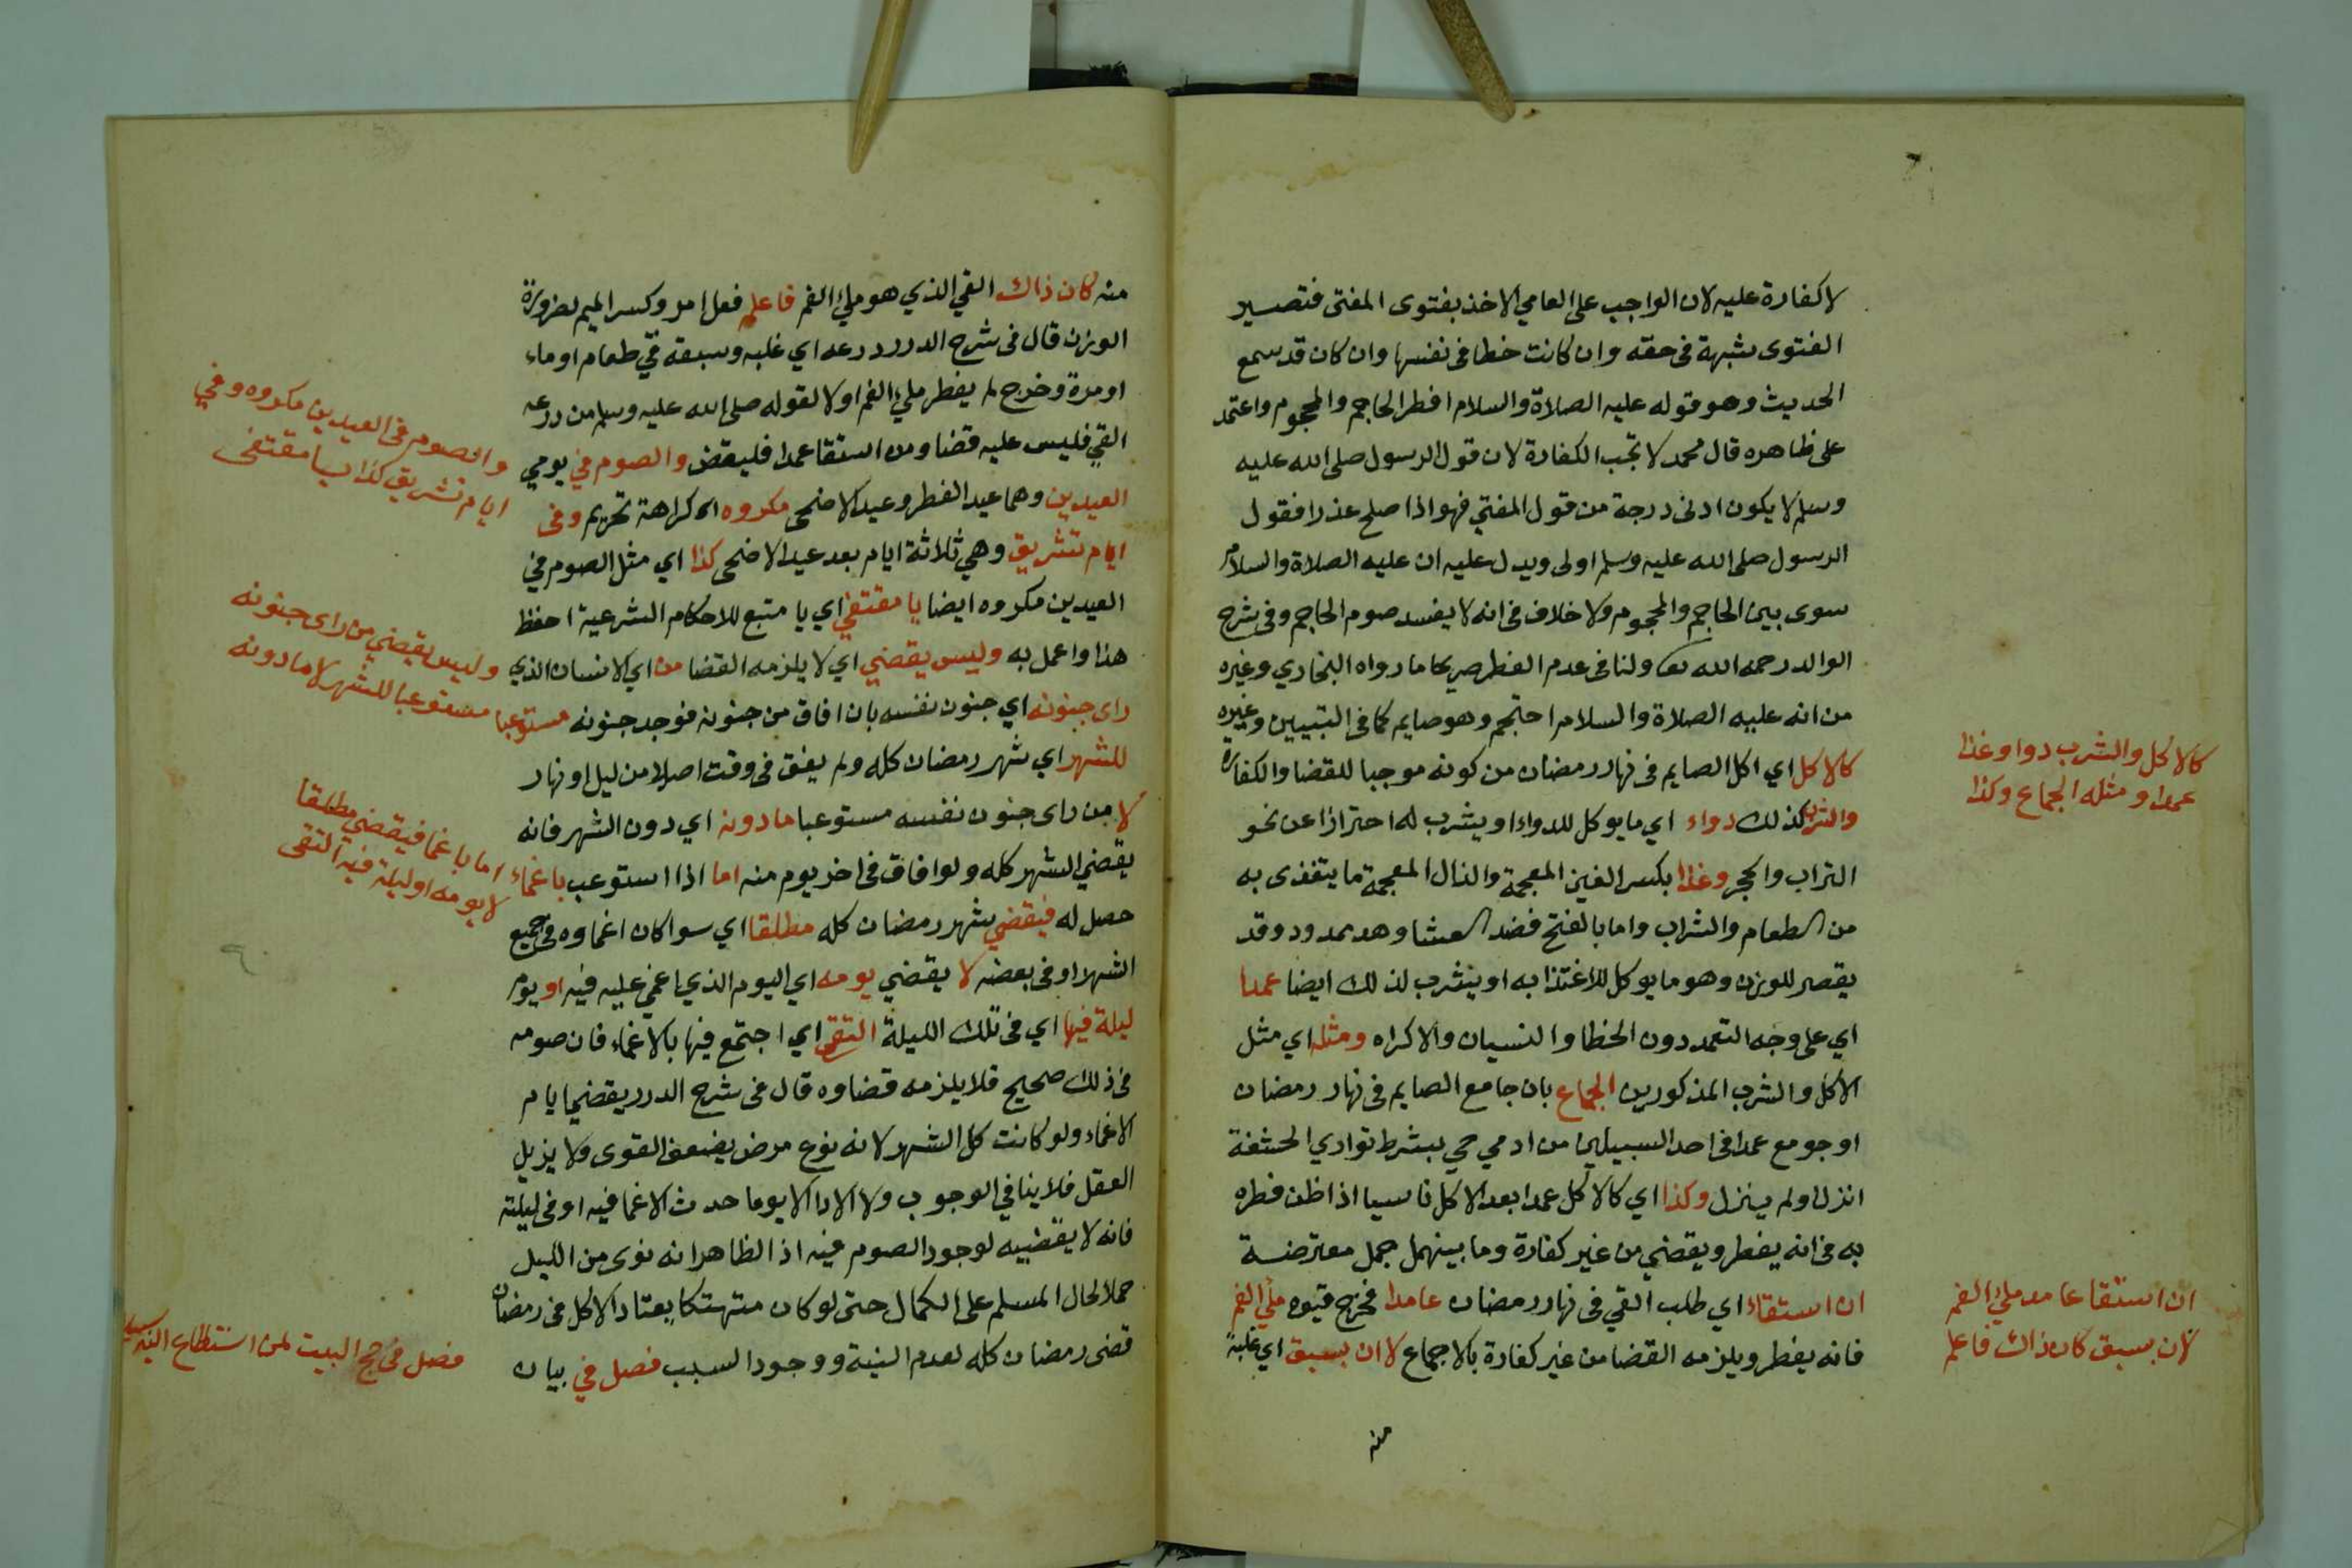 لا كفارة عليه لان الواجب على العامي الاخذ بفتوى المفتى فتصير
الفتوى شبهة فى حقه وان كانت خطا فى نفسها وان كان قد سمع
الحديث وهو قوله عليه الصلاة والسلام افطر الحاجم والمحجوم واعتمد
على ظاهره قال محمد لا تجب الكفارة لان قول الرسول صلى الله عليه
وسلم لا يكون ادنى درجة من قول المفتي فهو اذا صلح عذرا فقول
الرسول صلى الله عليه وسلم اولى ويدل عليه ان عليه الصلاة والسلام
سوى بين الحاجم والمحجوم ولا خلاف فى انه لا يفسد صوم الحاجم وفى شرح
الوالد رحمه الله ولنا فى عدم الفطر صريحا ما رواه البخاري وغيره
من انه عليه الصلاة والسلام احتجم وهو صايم كما فى التبيين وغيره
كالاكل اي اكل الصايم فى نهار رمضان من كونه موجبا للقضا والكفارة
والشرب كذلك دواء اي ما يوكل للدواء او يشرب له احترازا عن نحو
التراب والحجر وغذا بكسر الغين المعجمة والذال المعجمة ما يتغذى به
من الطعام والشراب واما بالفتح فضد العشا وهد ممدود وقد
يقصر للوزن وهو ما يوكل للاغتذا به او يشرب لذلك ايضا عمدا
اي على وجه التعمد دون الخطا والنسيان والاكراه ومثله اي مثل
الاكل والشرب المذكورين الجماع بان جامع الصايم فى نهار رمضان
او جومع عمدا فى احد السبيلين من ادمي حي بشرط تواري الحشفة
انزل او لم ينزل وكذا اي كالاكل عمدا بعد الاكل ناسيا اذا ظن فطره
به فى انه يفطر ويقضي من غير كفارة وما بينهما جمل معترضة
ان استقاء اي طلب القي فى نهار رمضان عامدا فخرج قيوه ملي الفم
فانه يفطر ويلزمه القضا من غير كفارة بالاجماع لا ان بسبق اي غلبة
منه
كالاكل والشرب دوا وغذا
عمدا ومثله الجماع وكذا
ان استقا عامد ملئ الفم
لا ان بسبق كان ذاك فاعلم
منه كان ذاك القي الذي هو ملئ الفم فاعلم فعل امر وكسر الميم لضرورة
الوزن قال فى شرح الدرر ذرعه اي غلبه وسبقه قي طعام او ماء
او مرة وخرج لم يفطر ملئ الفم او لا لقوله صلى الله عليه وسلم من ذرعه
القي فليس عليه قضا ومن استقا عمدا فليقض والصوم في يومي
العيدين وهما عيد الفطر وعيد الاضحى مكروه اي كراهة تحريم وفى
ايام تشريق وهي ثلاثة ايام بعد عيد الاضحى كذا اي مثل الصوم في
العيدين مكروه ايضا يا مقتفي اي يا متبع للاحكام الشرعية احفظ
هذا واعمل به وليس يقضي اي لا يلزمه القضا من اي الانسان الذي
راى جنونه اي جنون نفسه بان افاق من جنونه فوجد جنونه مستوعبا
للشهر اي شهر رمضان كله ولم يفق فى وقت اصلا من ليل او نهار
لا من راى جنون نفسه مستوعبا ما دونه اي دون الشهر فانه
يقضي الشهر كله ولو افاق فى اخر يوم منه اما اذا استوعب باغماء
حصل له فيقضي شهر رمضان كله مطلقا اي سوا كان اغماوه فى جميع
الشهر او فى بعضه لا يقضي يومه اي اليوم الذي اغمي عليه فيه او يوم
ليلة فيها اي فى تلك الليلة التقى اي اجتمع فيها بالاغماء فان صومه
فى ذلك صحيح فلا يلزمه قضاوه قال فى شرح الدرر يقضي ايام
الاغماء ولو كانت كل الشهر لانه نوع مرض يضعف القوى ولا يزيل
العقل فلا ينافي الوجوب ولا الادا الا يوما حدث الاغما فيه او فى ليلته
فانه لا يقضيه لوجود الصوم فيه اذ الظاهر انه نوى من الليل
حملا لحال المسلم على الكمال حتى لو كان متهتكا يعتاد الاكل فى رمضان
قضى رمضان كله لعدم النية ووجود السبب فصل في بيان
والصوم فى العيدين مكروه وفي
ايام تشريق كذا يا مقتفى
وليس يقضي من راى جنونه
مستوعبا للشهر لا ما دونه
اما باغما فيقضي مطلقا
لا يومه او ليلة فيه التقى
فصل فى حج البيت لمن استطاع اليه سبيلا